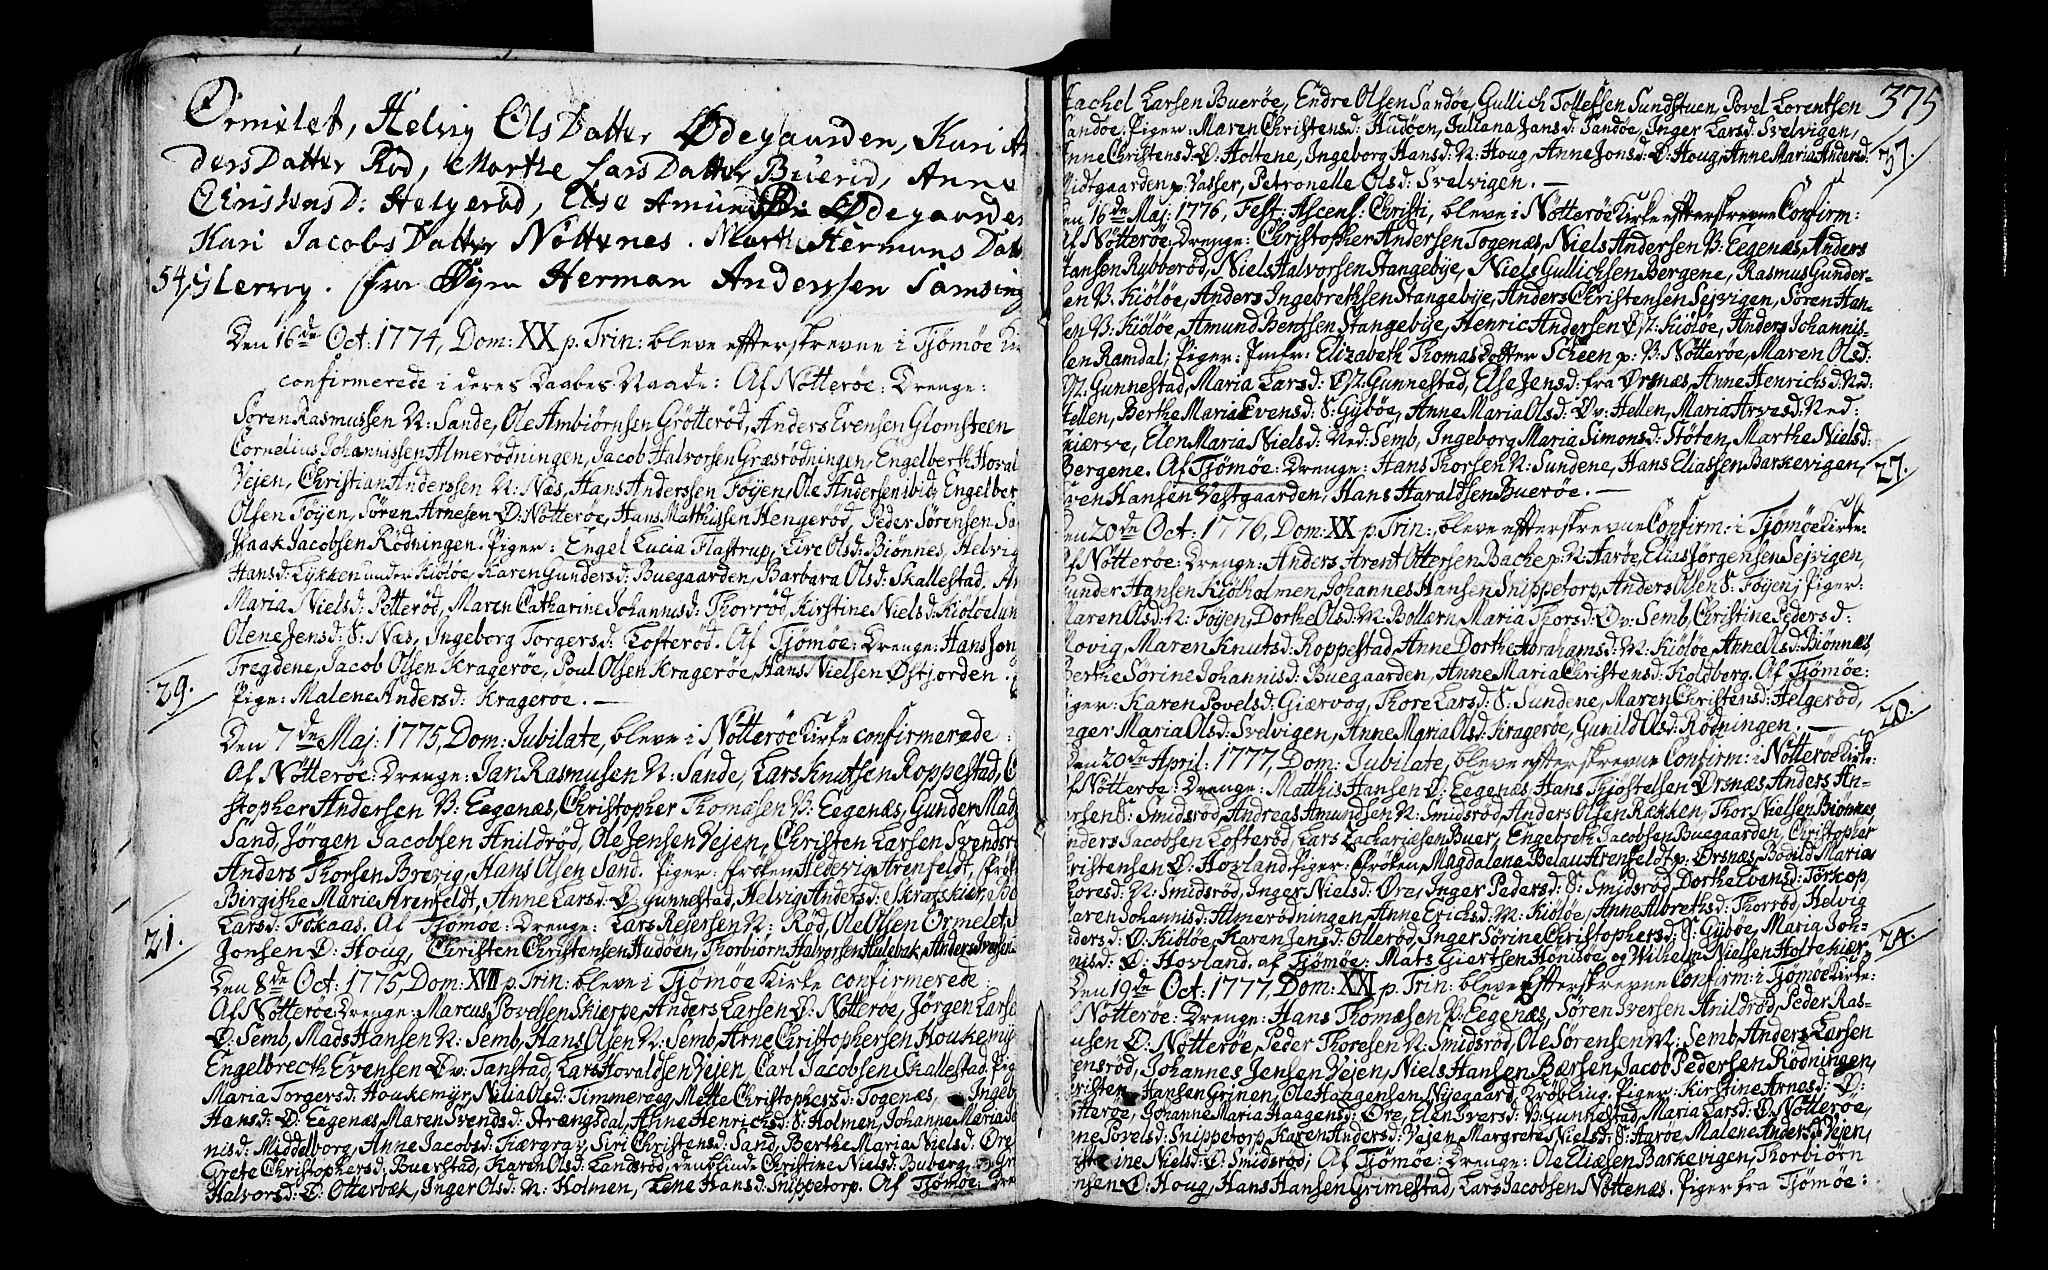 Ørmelet, Helvig Ols Datter Ødegaarden, Kari An
ders Datter Röd, Marthe Lars Datter Bueröd, Anne
Christensd: Helgeröd, Else Amunds Ødegaarden
Kari Jacobs Datter Nöttenes. Marthe Hermans Datt
54, Glervog. fra Öyne Herman Anderssen Samsing
Den 16de Oct: 1774, Dom: XX p. Trin: bleve effterskrevne i Tjömöe Kir
confirmerede i deres Daabes Naade: Af Nötteröe: Drenge:
Sören Rasmussen N: Sande, Ole Ambiörnsen Grötteröd, Anders Evensen Glomsteen
Cornelius Johannissen Almerödningen, Jacob Halvorsen Græsrödningen, Engelbrecht Hoval
Vejen, Christian Anderssen N: Næs, Hans Anderssen Föyen, Ole Andersen ibid, Engelber
Olsen Föyen, Sören Arnesen Ö: Nötteröe, Hans Matthissen Hengeröd, Peder Sörensen Sa
Isaak Jacobsen Rödningen. Piger: Engel Lucia Flastrup, Live Olsd: Biönnes, Helvig
Hansd: Lykken under Kiölöe, Karen Gundersd: Buegaarden, Barbara Olsd: Skallestad. An
Maria Nielsd: Petteröd, Maren Catharine Johannisd: Thorröd, Kirstine Nielsd: Kiölöe
Olene Jensd: S: Næs, Ingeborg Torgersd: Lofteröd. Af Tjömöe: Drenge: Hans Jon
Tregdene, Jacob Olsen Krageröe, Poul Olsen Krageröe, Hans Nielsen Østjorden.
29. Pige: Malene Andersd: Krageröe. —
Den 7de Maj: 1775, Dom: Jubilate, bleve i Nötteröe Kirke confirmerede:
Af Nötteröe: Drenge: Jan Rasmusen N: Sande, Lars Knutsen Roppestad, C
stopher Andersen V: Eegenæs, Christopher Thomasen V: Eegenæs, Gunder Mad
Sand, Jörgen Jacobsen Anildröd, Ole Jensen Vejen, Christen Larsen Svendsr
Anders Thorsen Brevig, Hans Olsen Sand. Piger: Fröken Hedevig Arenfeldt, Frök
Birgithe Marie Arenfeldt, Anne Larsd: Ö: Gunnestad, Helvig Andersd: Skratskier, Bo
21. Larsd: Fökaas. Af Tjömöe: Drenge: Lars Rejersen N: Röd, Ole Olsen Ormelet,
Jonsen Ö: Houg, Christen Christensen Hudöen, Thorbiörn Halvorsen Hulebak, Anders Iversen
Den 8de Oct: 1775, Dom: XVII p. Trin: bleve i Tjömöe Kirke confirmerede:
Af Nötteröe Drenge: Marcus Povelsen Skierpe, Anders Larsen Ö: Nötteröe, Jörgen Larse
Ö: Semb, Mads Hansen N: Semb, Hans Olsen N: Semb, Arne Christophersen Houkemyr
Engelbrecth Evensen Öv: Tanstad, Lars Hovaldsen Vejen, Carl Jacobsen Skallestad. Pig
Maria Torgersd: Houkemyr, Nilia Olsd: Timmeröeg, Mette Christophersd: Togenæs, Ingeb
Hansd: Ö: Eegenæs, Maren Svendsd: Strængsdal, Anne Henrichsd: S: Holmen, Johanne Maria
nisd: Middelborg, Anne Jacobsd: Kærgrav, Siri Christensd: Sand, Berthe Maria Nielsd: Öre
Grete Christophersd: Buerstad, Karen Olsd: Landsröd, den blinde Christine Nielsd: Buberg, Gr
Halvorsd: Ö: Otterbæk, Inger Olsd: N: Holmen, Lene Hansd: Snippetorp. Af Tjömöe: Dre
375
Rachel Larsen Bueröe, Endre Olsen Sandöe, Gullich Tollefsen Sundstuen, Povel Lorentsen
Sandöe. Piger: Maren Christensd: Hudöen, Juliana Jansd: Sandöe, Inger Larsd: Svelvigen,
Anne Christensd: Ö: Holtene, Ingeborg Hansd: N: Houg, Anne Jonsd: Ö: Houg, Anne Maria Andersd: 37.
Midtgaarden p: Vasser, Petronelle Olsd: Svelvigen. —
Den 16de Maj: 1776, Fest: Ascens: Christi, bleve i Nötteröe Kirke effterskrevne Confirm:
Af Nötteröe: Drenge: Christopher Andersen Togenæs, Niels Andersen V: Eegenæs, Anders
Hansen Rybberöd, Niels Halvorsen Stangebye, Niels Gullichsen Bergene, Rasmus Gunder-
sen V: Kiölöe, Anders Ingebrethsen Stangebye, Anders Christensen Sejvigen, Sören Han-
sen V: Kiölöe, Amund Bentsen Stangebye, Henric Andersen Öst: Kiölöe, Anders Johannis-
sen Ramdal; Piger: Jmfr: Elizabeth Thomasdotter Scheen p: V: Nötteröe, Maren Olsd:
Öst: Gunnestad, Maria Larsd: Öst: Gunnestad, Else Jensd: fra Örsnæs, Anne Henrichsd: Ned:
Hellen, Berthe Maria Evensd: S: Gyböe, Anne Maria Olsd: Öv: Hellen, Maria Arvesd: Ned:
Kiærve, Elen Maria Nielsd: Ned: Semb, Ingeborg Maria Simonsd: Stöten, Marthe Nielsd:
Bergene. Af Tjömöe: Drenge: Hans Thorsen N: Sundene, Hans Eliassen Barkevigen, 27.
Even Hansen Vestgaarden, Hans Haraldsen Bueröe. —
Den 20de Oct: 1776, Dom: XX p. Trin: bleve effterskrevne Confirm: i Tjömöe Kirke:
Af Nötteröe: Drenge: Anders Arent Ottersen Bache p: N: Aaröe, Elias Jörgensen Sejvigen,
Gunder Hansen Kiölholmen, Johannes Hansen Snippetorp, Anders Olsen S: Föyen; Piger:
Maren Olsd: N: Föyen, Dorthe Olsd: N: Bollærn, Maria Thorsd: Öv: Semb, Christine Pedersd:
Hovig, Maren Knutsd: Roppestad, Anne Dorthe Abrahamsd: N: Kiölöe, Anne Olsd: Biönnæs,
Berthe Sörine Johannisd: Buegaarden, Anne Maria Christensd: Koldborg. Af Tjömöe:
Piger: Karen Povelsd: Giærvog, Thore Larsd: S: Sundene, Maren Christensd: Helgeröd, 20.
Inger Maria Olsd: Svelvigen, Anne Maria Olsd: Krageröe, Gunild Olsd: Rödningen. —
Den 20de April: 1777, Dom: Jubilate, bleve effterskrevne Confirm: i Nötteröe Kirke:
Af Nötteröe: Drenge: Matthis Hansen Ö: Eegenæs, Hans Thjöstelsen Örsnæs, Anders An-
dersen S: Smidsröd, Andreas Amundsen N: Smidsröd, Anders Olsen Rækken, Thor Nielsen Bionnæs,
Anders Jacobsen Lofteröd, Lars Zachariasen Buer, Engebreth Jacobsen Buegaarden, Christopher
Christensen Ö: Hovland. Piger: Fröken Magdalene Belau Arenfeldt p: Örsnæs, Bodild Maria
Toresd: N: Smidsröd, Inger Nielsd: Öre, Inger Pedersd: S: Smidsröd, Dorthe Evansd: Torkop,
Karen Johannisd: Almerödningen, Anne Erichsd: N: Kiölöe, Anne Albrethsd: Thorröd, Helvig
Andersd: Ö: Kiölöe, Karen Jensd: Olleröd, Inger Sörine Christophersd: S: Gyböe, Maria Joh- 24.
annisd: Ö: Hovland. af Tjömöe: Mats Giertsen Hönisöe, og Wilhelm Nielsen Holtekiær,
Den 19de Oct: 1777, Dom: XXI p. Trin: bleve effterskrevne Confirm: i Tjömöe Kirke:
Nötteröe: Drenge: Hans Thomæsen V: Eegenæs, Sören Iversen Anildröd, Peder Ras-
musen Ö: Nötteröe, Peder Thoresen N: Smidsröd, Ole Sörensen N: Semb, Anders Larsen
ensröd, Johannes Jensen Vejen, Niels Hansen Bærsen, Jacob Pedersen Rödningen,
Christen Hansen Grinen, Ole Haagensen Nyegaard, Kröbling. Piger: Kirstine Arnesd: Ö:
Nötteröe, Johanne Maria Haagensd: Öre, Elen Iversd: V: Gunnestad, Maria Larsd: Ö: Nötteröe,
ene Povelsd: Snippetorp, Karen Andersd: Vejen, Margrete Nielsd: S: Aaröe, Malene Andersd: Vejen,
ine Nielsd: Ö: Smidsröd; Af Tjömöe: Drenge: Ole Eliæsen Barkevigen, Thorbiörn
nsen Ö: Houg, Hans Hansen Grimestad, Lars Jacobsen Nöttenæs. Piger fra Tjömöe: